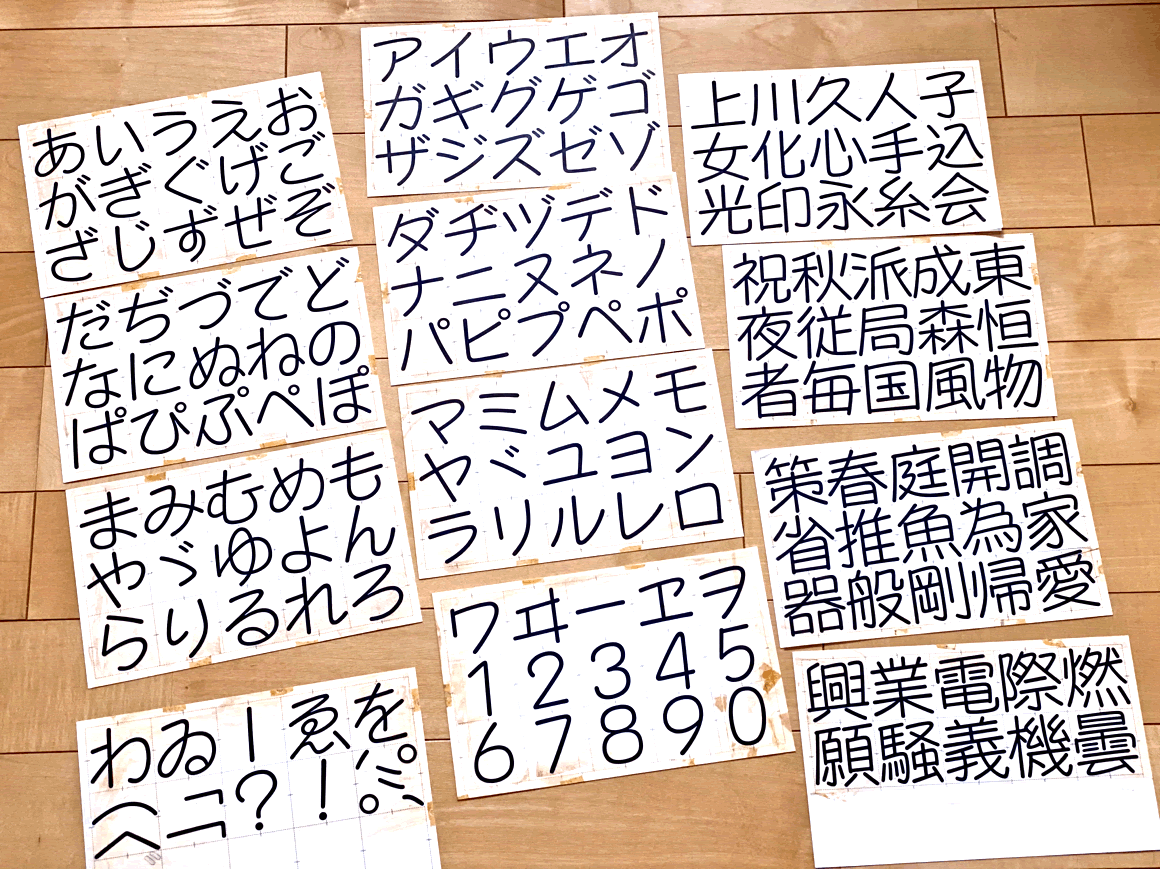 あいうえお
がぎぐげご
ざじずぜぞ
だぢづでど
なにぬねの
ぱぴぷぺぽ
まみむめも
やゞゆよん
らりるれろ
わゐ｜ゑを
へ﹁？！
アイウエオ
ガギグゲゴ
ザジズゼゾ
ダヂヅデド
ナニヌネノ
パピプペポ
マミムメモ
ヤヾユヨン
ラリルレロ
ワヰーヱヲ
12345
67890
上川久人子
女化心手込
光印永糸会
祝秋派成東
夜従局森恒
者毎国風物
策春庭開調
省推魚為家
器般剛帰愛
興業電際燃
願騒義機曇